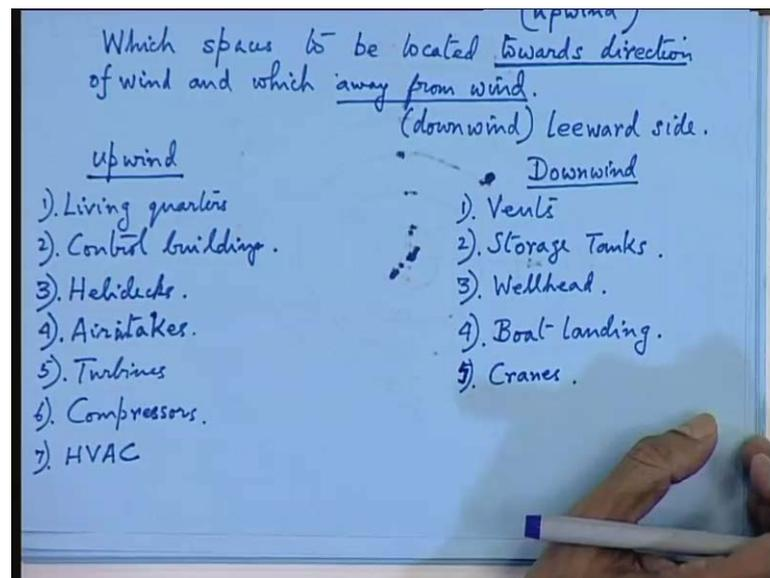 (upwind)
Which spaces to be located towards direction
of wind and which away from wind.
(downwind) Leeward side.
upwind
1). Living quarters
2). Control buildings.
3). Helidecks.
4). Airintakes.
5). Turbines
6). Compressors.
7). HVAC
Downwind
1). Vents
2). Storage Tanks.
3). Wellhead.
4). Boat landing.
5). Cranes.